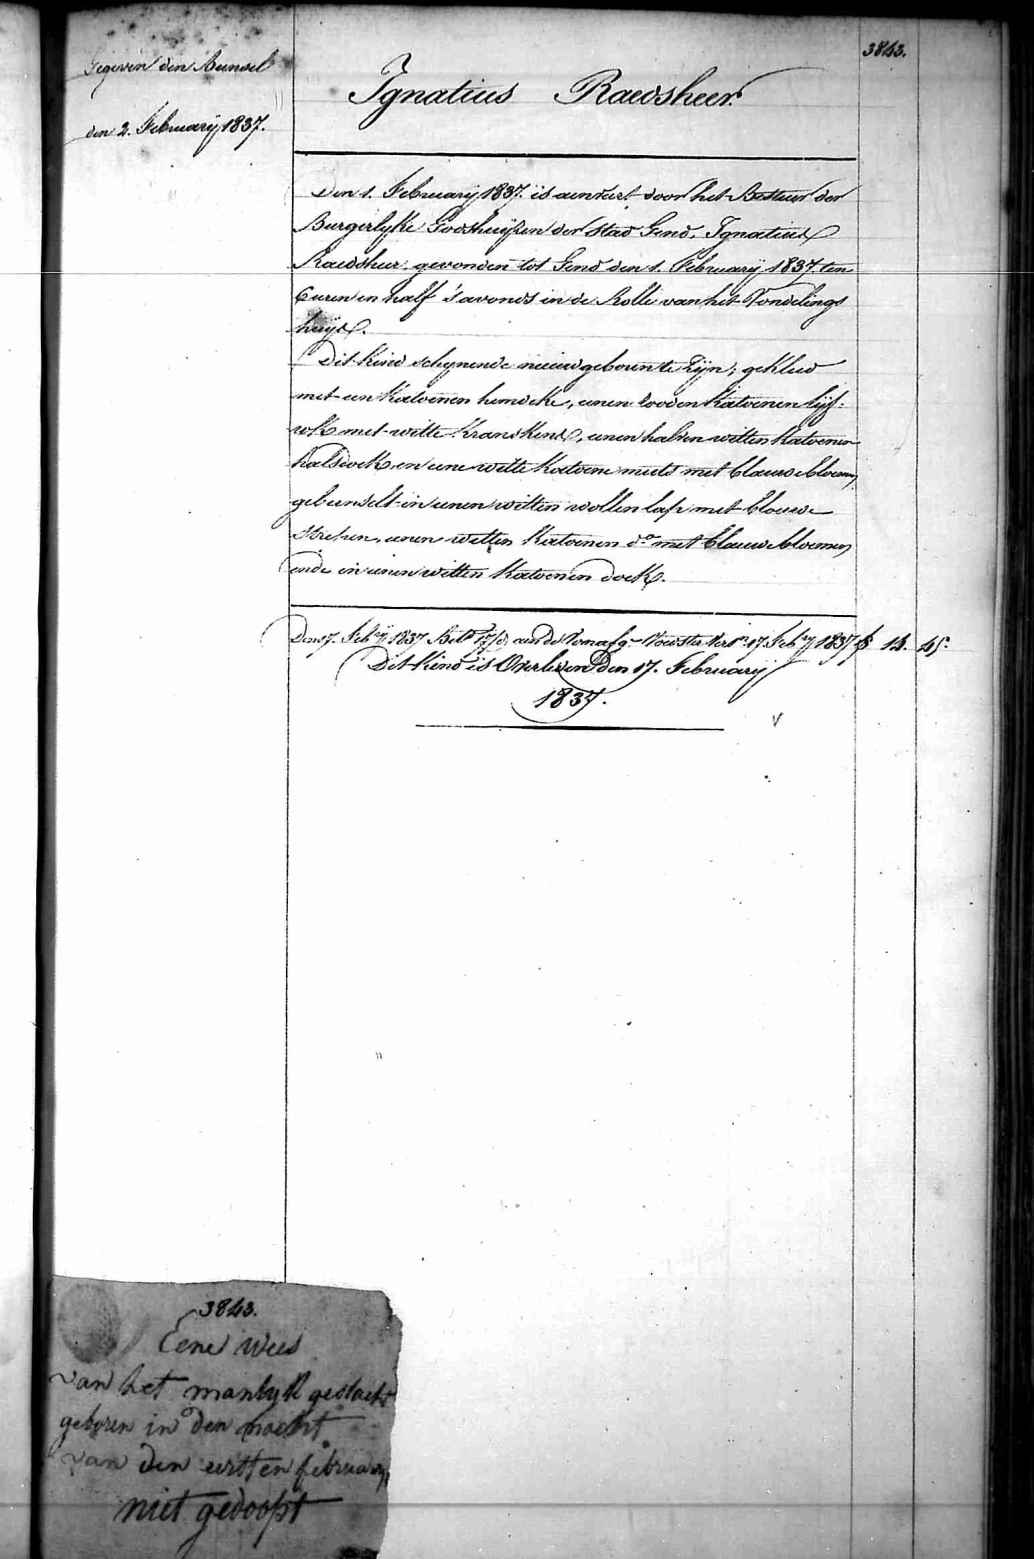 3843.
Gegeven den Bundel
den 2. February 1837.
Ignatius Raedsheer.
Den 1. February 1837. is aenveert door het Bestuer der
Burgerlyke Godshuyzen der Stad Gend, Ignatius
Raedsheer. gevonden tot Gend den 1. February 1837. ten
6 uren en half 's avonds in de Rolle van het Vondelings
huys.
Dit kind schynende nieuwgeboren te zyn; gekleed
met een katoenen hemdeke, eenen rooden katoenen lyf-
rok met witte kranskens, eenen halven witten katoenen
halsdoek en eene witte katoene muts met blauwe bloemen,
gebunselt in eenen witten wollen lap met blouwe
streepen, eenen witten katoenen do. met blauwe bloemen
ende in eenen witten katoenen doek.
Den 17. Feby 1837 aen de Voedster 17. Feby 1837 14. 45.
Dit Kind is Overleden Den 17. February
1837.
3843.
Eene Wees
van het manlyk geslacht
geboren in den nacht
van den eersten february
niet gedoopt